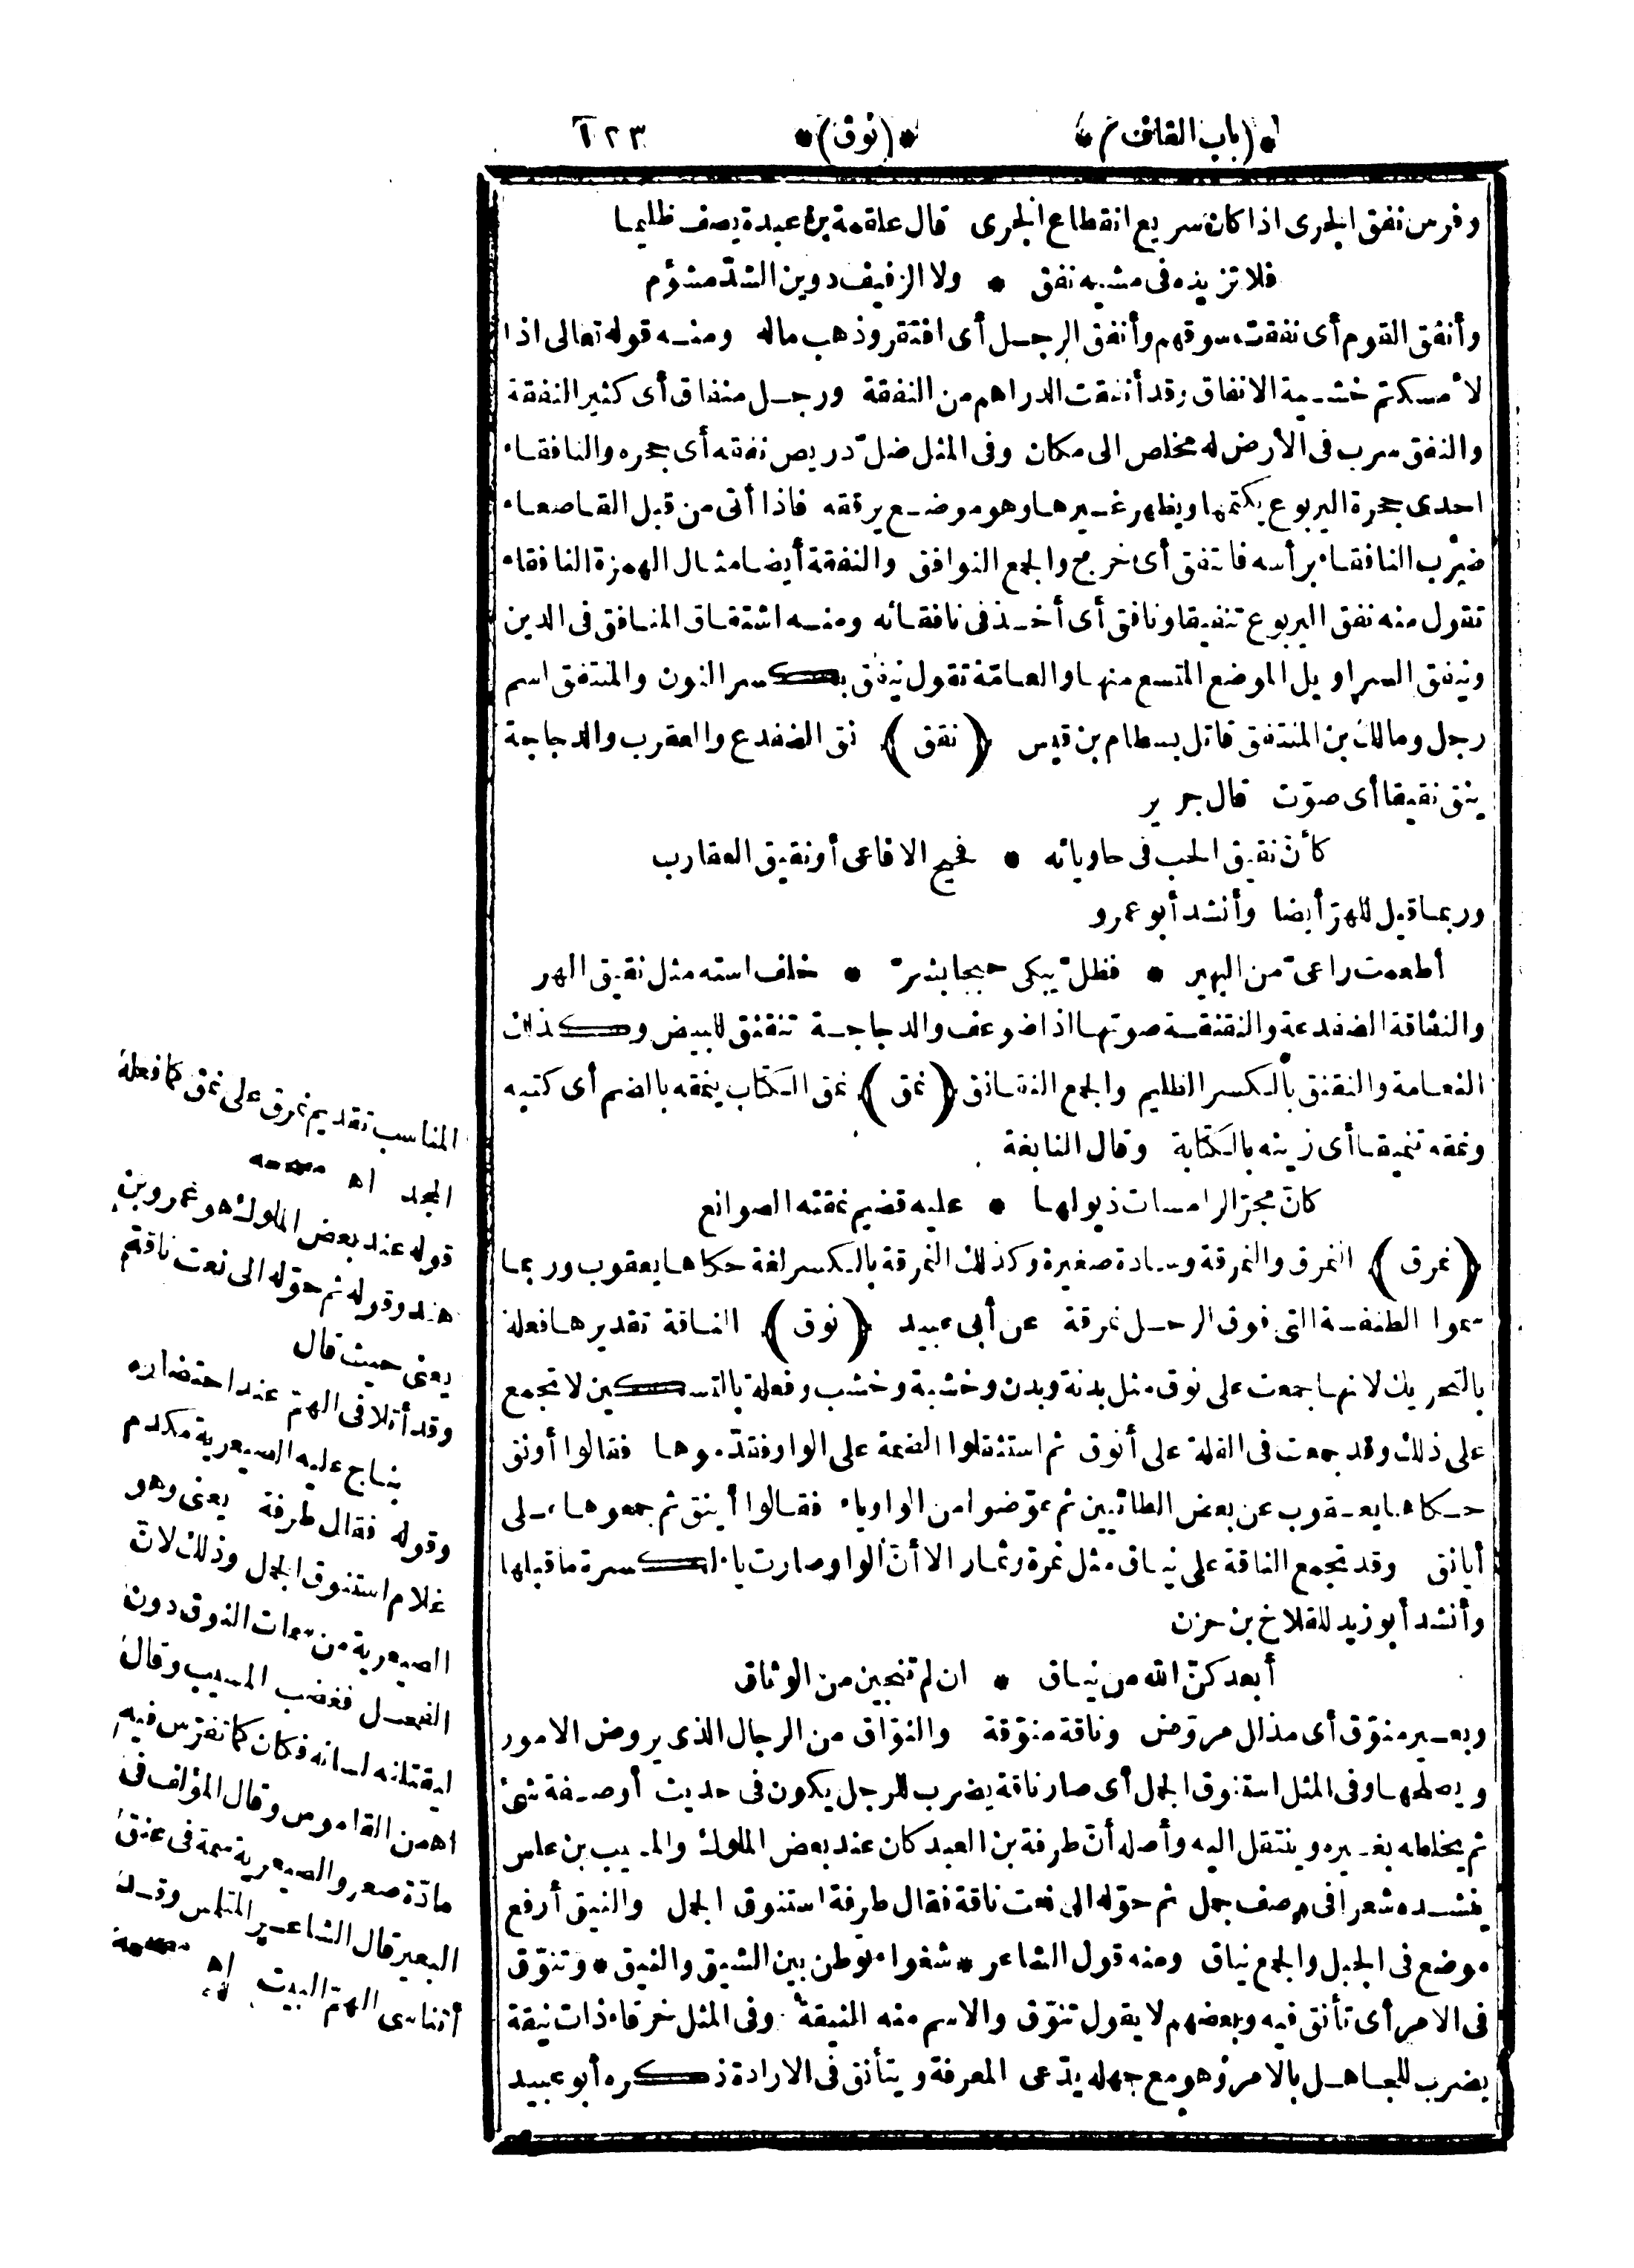 (باب القاف) (نوق) ١٢٣
وفرس نفق الجرى اذا كان سريع انقطاع الجرى قال علقمة بن عبدة يصف ظليما
فلا تزيده فى مشيه نفق * ولا الزفيف دوين الشدّ مسؤم
وأنفق القوم أى نفقت سوقهم وأنفق الرجل أى افتقر وذهب ماله ومنه قوله تعالى اذا
لأمسكتم خشية الانفاق وقد أنفقت الدراهم من النفقة ورجل منفاق أى كثير النفقة
والنفق سرب فى الأرض له مخلص الى مكان وفى المثل ضلّ دريص نفقه أى جحره والنافقاء
احدى جحرة اليربوع يكتمها ويظهر غيرها وهو موضع يرققه فاذا أتى من قبل القاصعاء
ضرب النافقاء برأسه فانتفق أى خرج والجمع النوافق والنفقة أيضا مثال الهمزة النافقاء
تقول منه نفق اليربوع تنفيقا ونافق أى أخذ فى نافقائه ومنه اشتقاق المنافق فى الدين
ونيفق السراويل الموضع المتسع منها والعامّة تقول نيفق بكسر النون والمنتفق اسم
رجل ومالك بن المنتفق قاتل بسطام بن قيس (نقق) نق الضفدع والعقرب والدجاجة
ينق نقيقا أى صوّت قال جرير
كأنّ نقيق الحب فى حاويائه * فحيح الافاعى أو نقيق العقارب
وربما قيل للهرّ أيضا وأنشد أبو عمرو
أطعمت راعىّ من اليهير * فظلّ يبكى حبجا بشرّ * خلف استه مثل نقيق الهر
والنقاقة الضفدعة والنقنقة صوتها اذا ضوعف والدجاجة تنقنق للبيض وكذلك
النعامة والنقنق بالكسر الظليم والجمع النقانق (نمق) نمق الكتاب ينمقه بالضم أى كتبه
ونمقه تنميقا أى زينه بالكتابة وقال النابغة
كانّ مجرّ الرامسات ذيولها * عليه قضيم نمقته الصوانع
(نمرق) النمرق والنمرقة وسادة صغيرة وكذلك النمرقة بالكسر لغة حكاها يعقوب وربما
سموا الطنفسة التى فوق الرحل نمرقة عن أبى عبيد (نوق) الناقة تقديرها فعلة
بالتحريك لانها جمعت على نوق مثل بدنة وبدن وخشبة وخشب وفعلة بالتسكين لا تجمع
على ذلك وقد جمعت فى القلة على أنوق ثم استثقلوا الضمة على الواو فقدّموها فقالوا أونق
حكاها يعقوب عن بعض الطائيين ثم عوّضوا من الواو ياء فقالوا أينق ثم جمعوها على
أيانق وقد تجمع الناقة على نياق مثل ثمرة وثمار الا أنّ الواو صارت ياء لكسرة ما قبلها
وأنشد أبو زيد للقلاخ بن حزن
أبعدكنّ الله من نياق * ان لم تنجين من الوثاق
وبعير منوّق أى مذلل مروّض وناقة منوّقة والنوّاق من الرجال الذى يروض الامور
ويصلحها وفى المثل استنوق الجمل أى صار ناقة يضرب للرجل يكون فى حديث أو صفة شئ
ثم يخلطه بغيره وينتقل اليه وأصله أنّ طرفة بن العبد كان عند بعض الملوك والمسيب بن علس
ينشده شعرا فى وصف جمل ثم حوّله الى نعت ناقة فقال طرفة استنوق الجمل والنيق أرفع
موضع فى الجبل والجمع نياق ومنه قول الشاعر * شغواء توطن بين الشيق والنيق * وتنوّق
فى الامر أى تأنق فيه وبعضهم لا يقول تنوّق والاسم منه النيقة وفى المثل خرقاء ذات نيقة
يضرب للجاهل بالامر وهو مع جهله يدّعى المعرفة ويتأنق فى الارادة ذكره أبو عبيد
المناسب تقديم نمرق على نمق كما فعله
المجد اه مصححه
قوله عند بعض الملوك هو عمرو بن
هند وقوله ثم حوّله الى نعت ناقة
يعنى حيث قال
وقد أتلافى الهمّ عند احتضاره
بناج عليه الصيعرية مكدم
وقوله فقال طرفة يعنى وهو
غلام استنوق الجمل وذلك لانّ
الصيعرية من سمات النوق دون
الفحل فغضب المسيب وقال
ليقتلنه لسانه فكان كما تفرّس فيه
اه من القاموس وقال المؤلف فى
مادّة صعر والصيعرية سمة فى عنق
البعير قال الشاعر المتلمس وقد
أتناسى الهمّ البيت اه مصححه